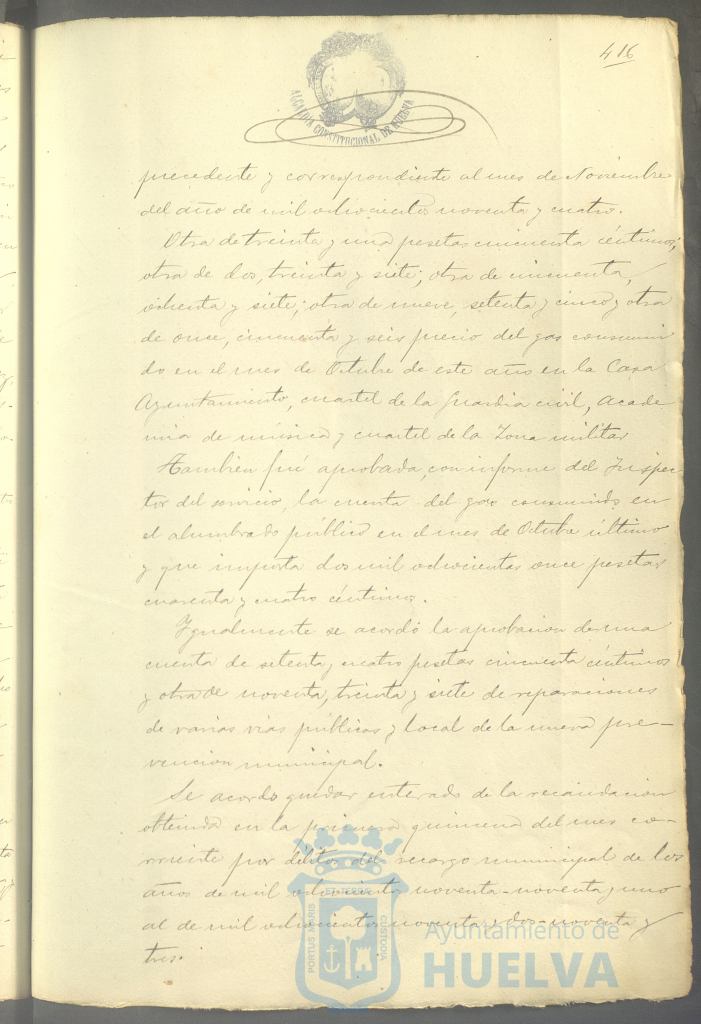 416
ALCALDIA CONSTITUCIONAL DE HUELVA
precedente y correspondiente al mes de Noviembre
del año de mil ochocientos noventa y cuatro.
Otra de treinta y una pesetas cincuenta céntimos;
otra de dos, treinta y siete; otra de cincuenta,
ochenta y siete; otra de nueve, setenta y cinco y otra
de once, cincuenta y seis precio del gas consumi
do en el mes de Octubre de este año en la Casa
Ayuntamiento, cuartel de la Guardia civil, acade
mia de música y cuartel de la Zona militar
Tambien fué aprobada, con informe del Inspec
tor del servicio, la cuenta del gas consumido en
el alumbrado público en el mes de Octubre último
y que importa dos mil ochocientas once pesetas
cuarenta y cuatro céntimos.
Igualmente se acordó la aprobacion de una
cuenta de setenta y cuatro pesetas cincuenta céntimos
y otra de noventa, treinta y siete de reparaciones
de varias vias públicas y local de la nueva pre-
vencion municipal.
Se acordo quedar enterado de la recaudacion
obtenida en la primera quincena del mes co-
rriente por débitos del recargo municipal de los
años de mil ochocientos noventa-noventa y uno
al de mil ochocientos noventa y dos-noventa y
tres.
PORTUS MARIS
CUSTODIA
Ayuntamiento de
HUELVA